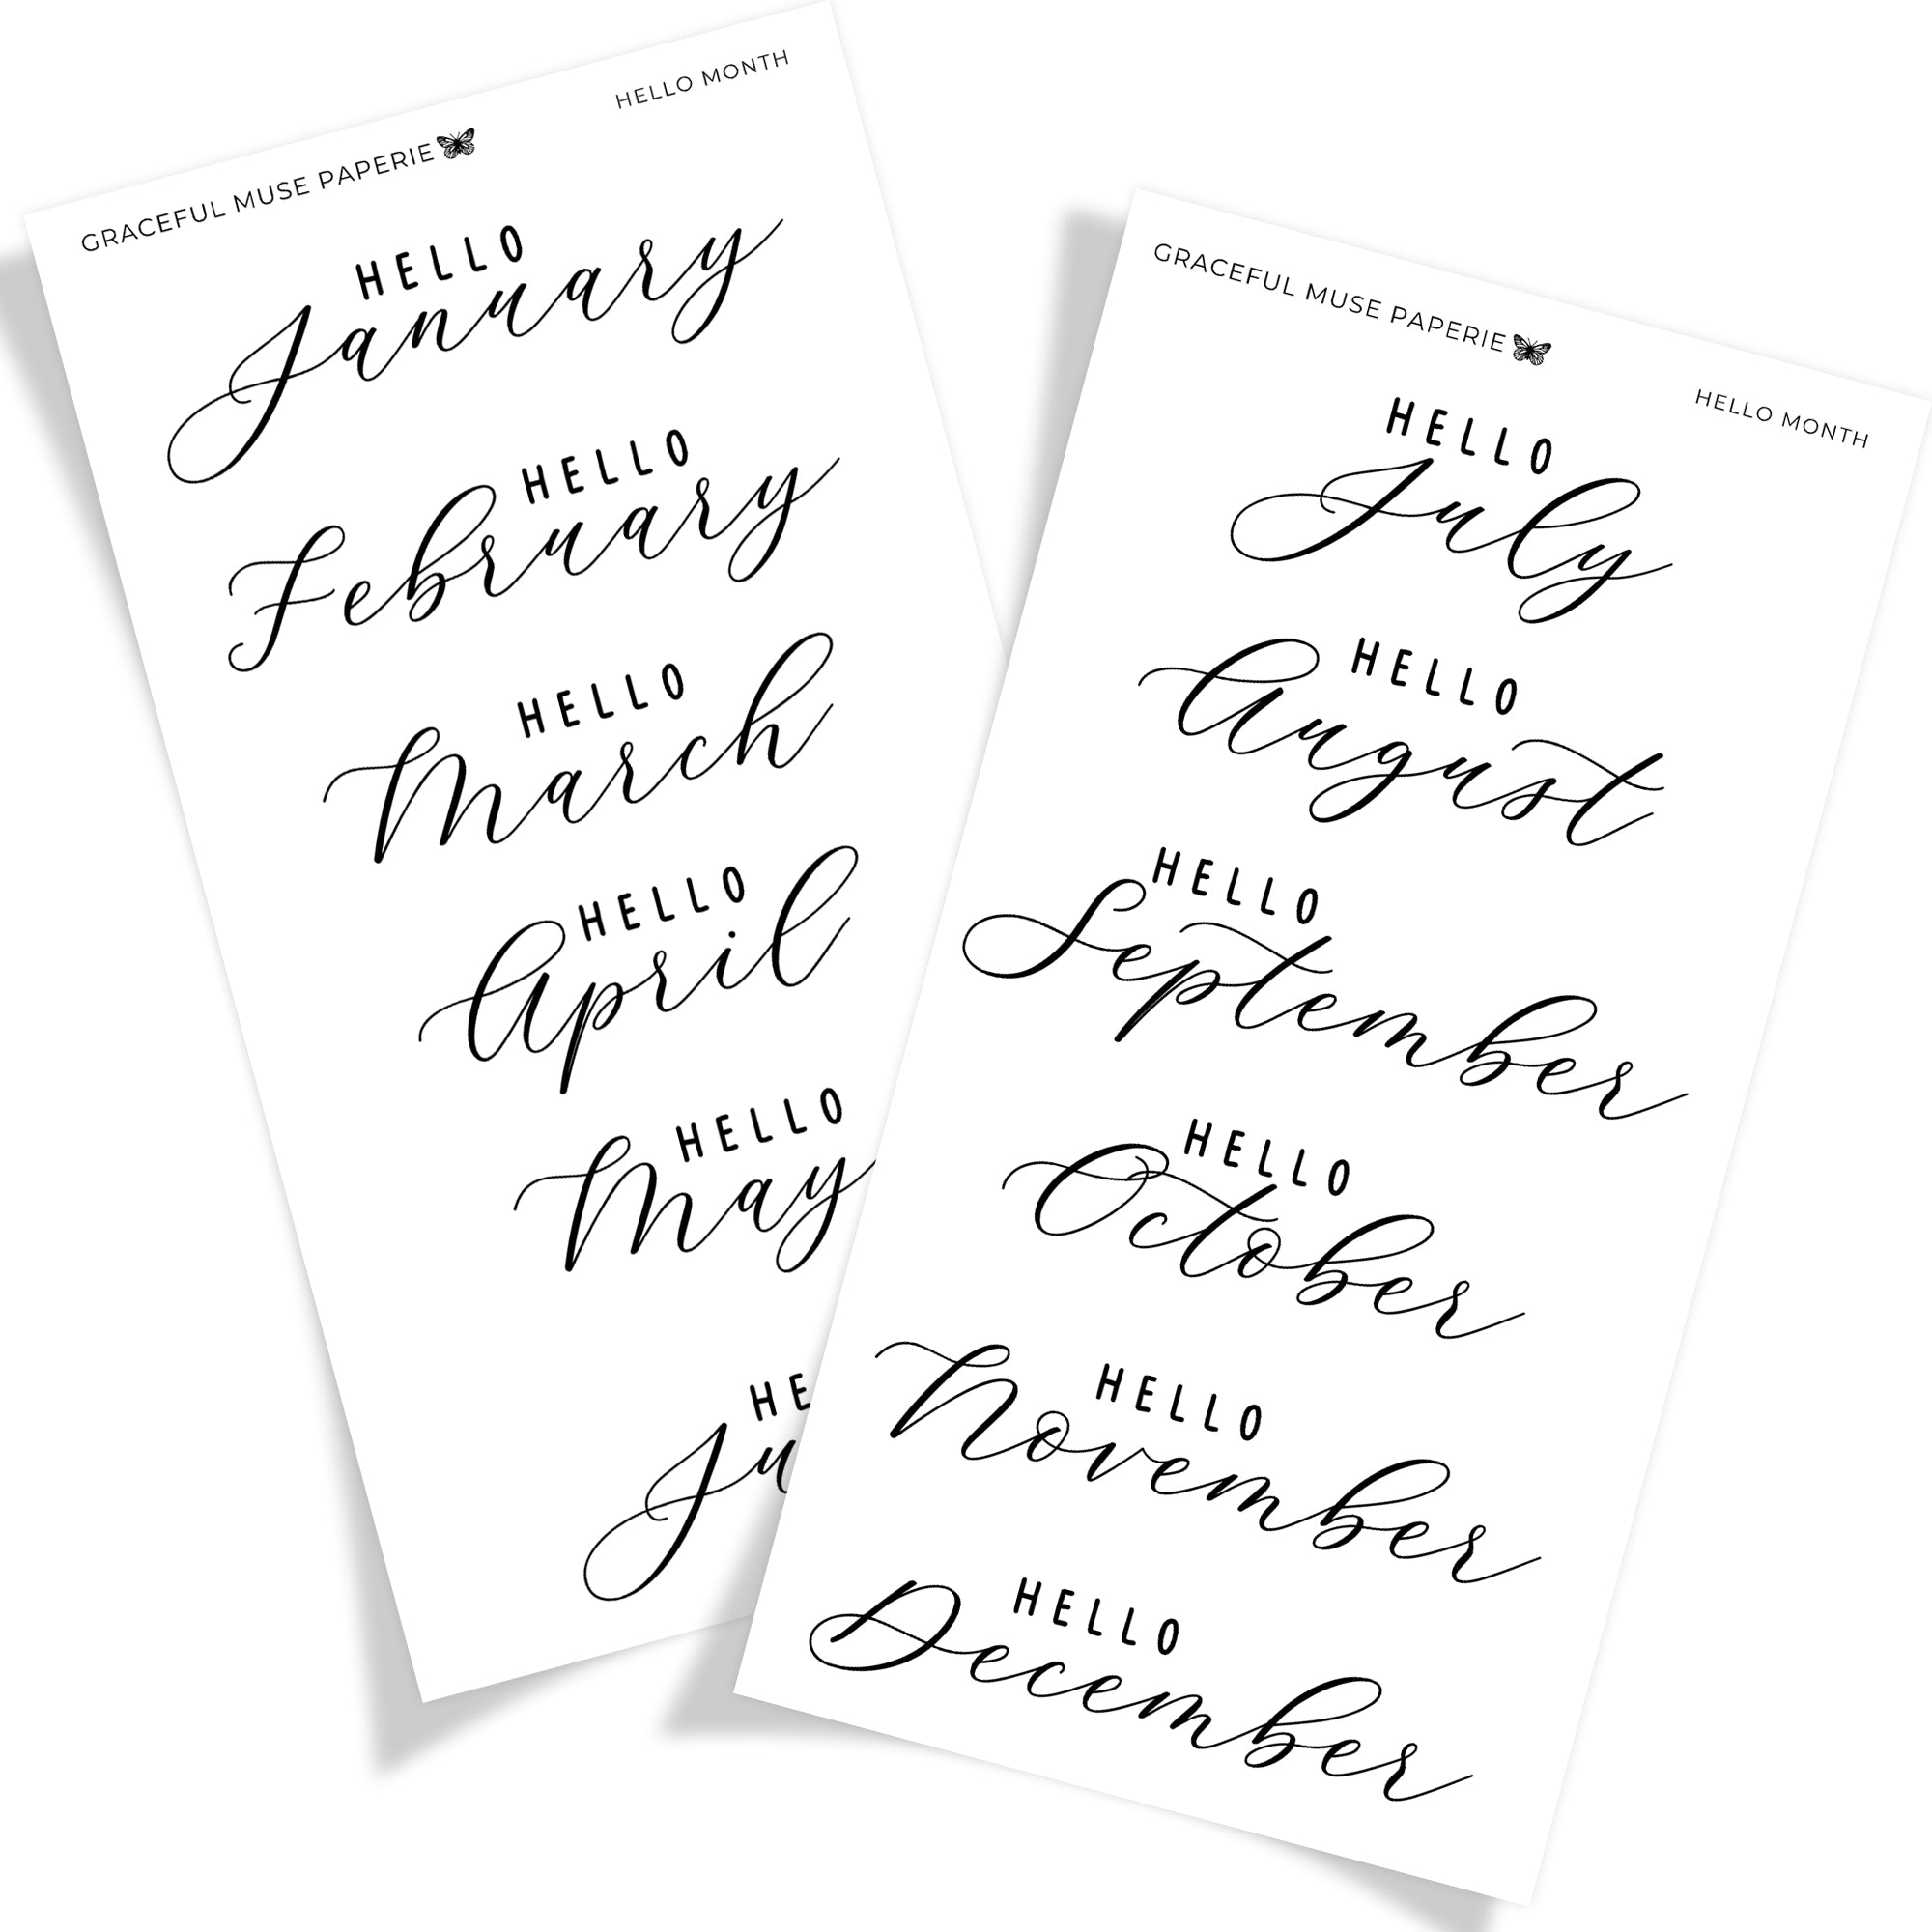 GRACEFUL MUSE PAPERIE
HELLO MONTH
HELLO
January
HELLO
February
HELLO
March
HELLO
April
HELLO
May
HE
Ju
GRACEFUL MUSE PAPERIE
HELLO MONTH
HELLO
July
HELLO
August
HELLO
September
HELLO
October
HELLO
November
HELLO
December